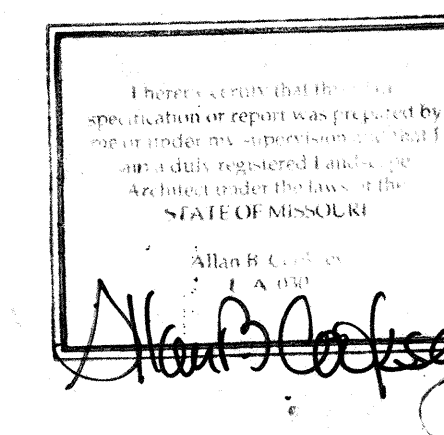 I hereby certify that this
specification or report was prepared by
me or under my supervision and that I
am a duly registered Landscape
Architect under the laws of the
STATE OF MISSOURI
Allan B.
L A 030
Allan B Cookse